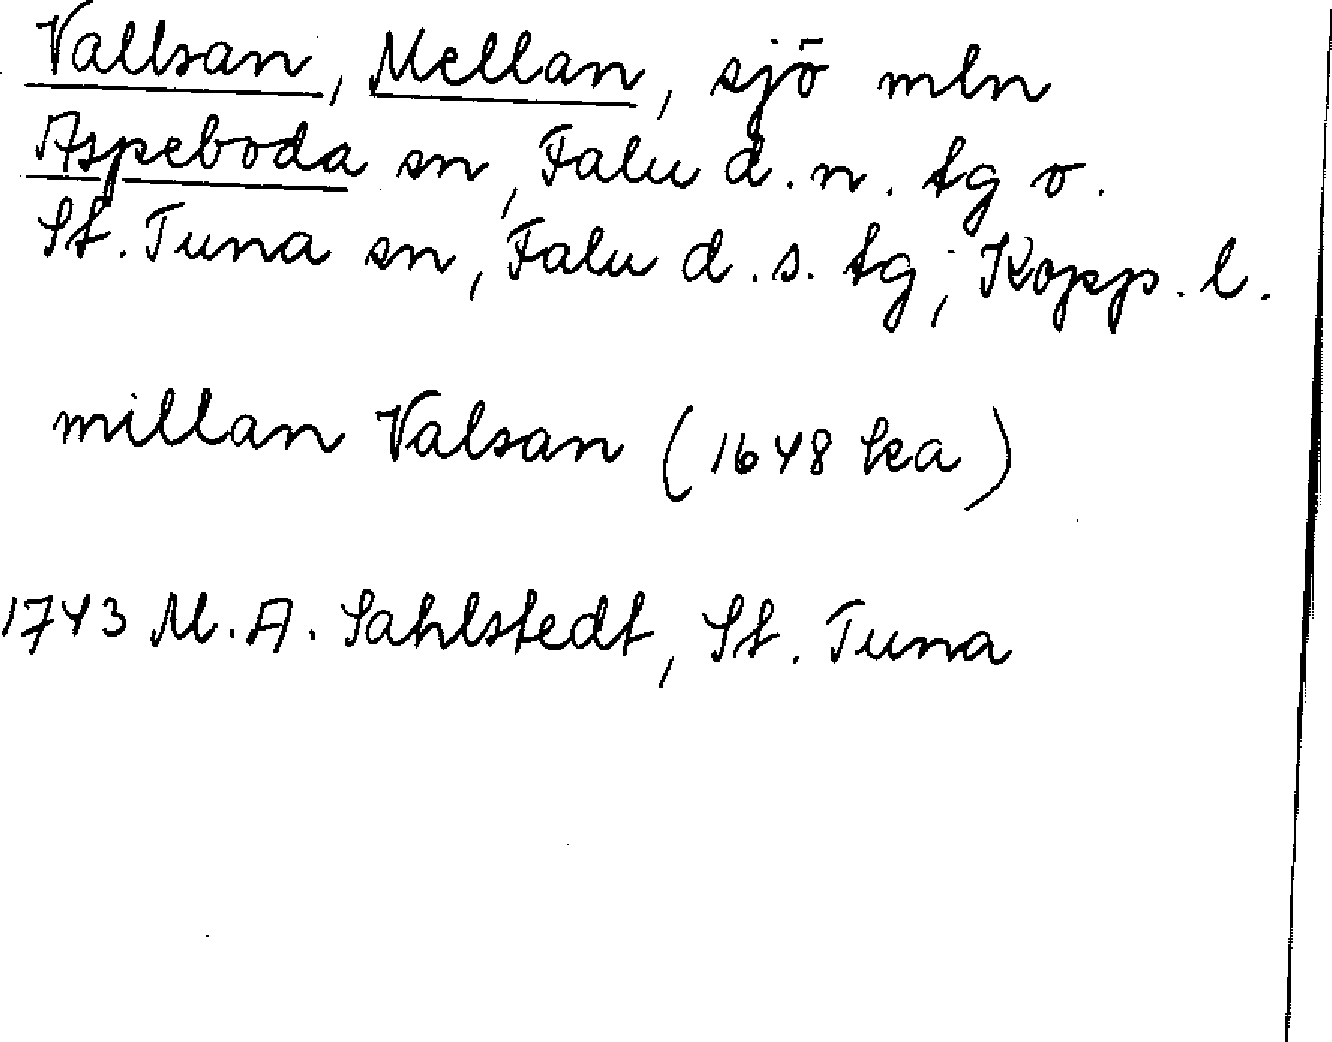 Vallsan, Mellan, sjö mln
Aspeboda sn, Falu d. n. tg o.
St. Tuna sn, Falu d. s. tg, Kopp. l.
millan Valsan (1648 ka)
1743 M. A. Sahlstedt, St. Tuna